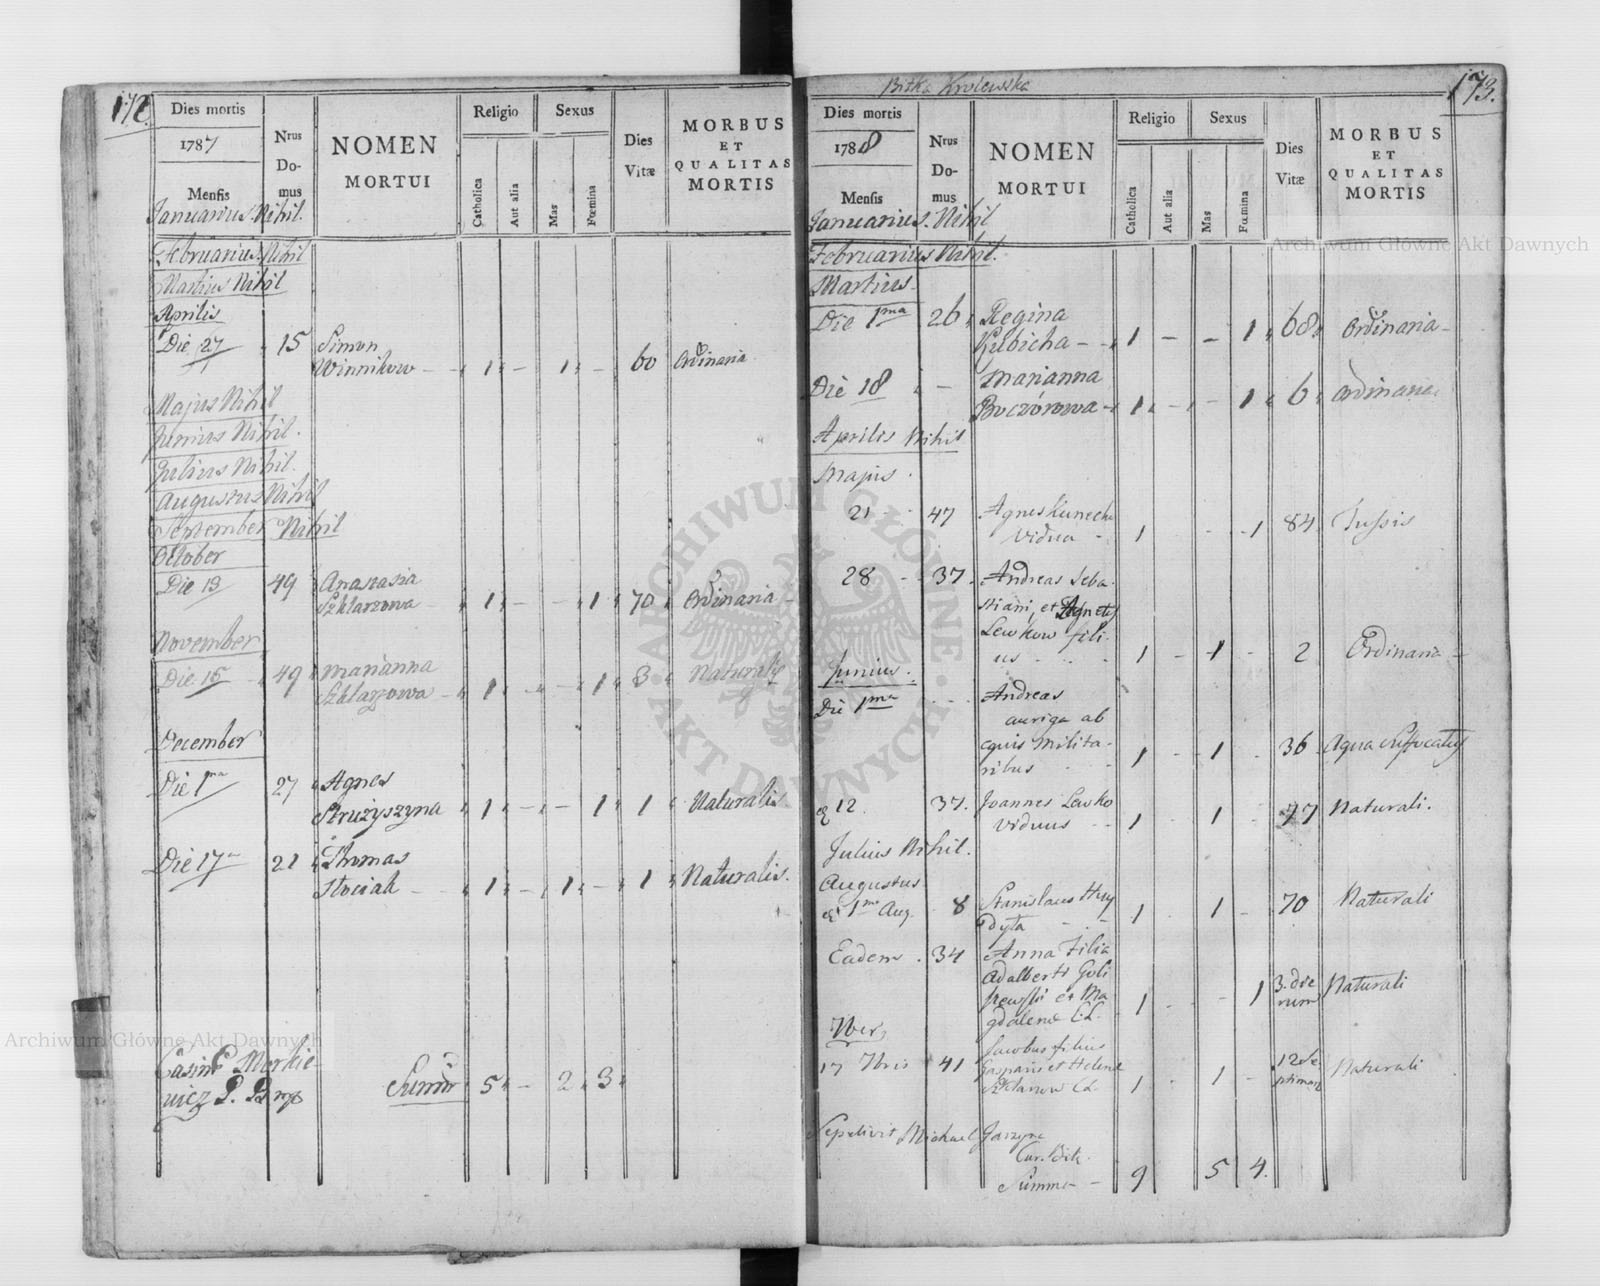 172.
Dies mortis
1787
Mensis
Nrus
Do-
mus
NOMEN
MORTUI
Religio
Catholica
Aut alia
Sexus
Mas
Fœmina
Dies
Vitæ
MORBUS
ET
QUALITAS
MORTIS
Januarius. Nihil.
Februarius. Nihil
Martius Nihil
Aprilis
Die 27 15 Simon
Winnikow 1 - 1 - 60 Ordinaria
Majus Nihil
Junius Nihil.
Julius Nihil.
Augustus Nihil
September Nihil
October
Die 13 49 Anastasia
Szklarzowa 1 - - 1 70 Ordinaria
November
Die 15 49 Marianna
Szklarzowa 1 - - 1 3 Naturalis
December
Die 1ma 27 Agnes
Strużyszyna 1 - - 1 1 Naturalis.
Die 17a 21 Thomas
Słociak 1 - 1 - 1 Naturalis.
P.
5 - 2 3
Bitka Krolewska
173.
Dies mortis
1788
Mensis
Nrus
Do-
mus
NOMEN
MORTUI
Religio
Catholica
Aut alia
Sexus
Mas
Fœmina
Dies
Vitæ
MORBUS
ET
QUALITAS
MORTIS
Januarius. Nihil
Februarius Nihil.
Martius.
Die 1ma 26 Regina
Kubicha - 1 - - 1 68 Ordinaria
Die 18 - Marianna
Boczórowa 1 - - 1 6 Ordinaria
Aprilis Nihil
Majus.
21 47 Agnes
Vidua 1 - 1 84 Tussis
28 37. Andreas Seba
stiani, et Agnetis
Lewkow fili-
us 1 - 1 - 2 Ordinaria
Junius.
Die 1ma Andreas
auriga ab
equis milita-
ribus 1 - 1 - 36 Aqua suffocatus
12. 37. Joannes Lewko
viduus 1 1 77 Naturali.
Julius Nihil.
Augustus
1ma Aug. 8 Stanislaus
dyta 1 1 - 70 Naturali
Eadem. 34 Anna Filia
Adalberti
et Ma
gdalenæ C.L. 1 - - 1 3. die
rum Naturali
7ber
17 7bris 41 Jacobus filius
Gaspari et Helenæ
Szklarzow C.L. 1 1 - 12 Se
ptiman Naturali
Sepelivit Michael Jarzyna
Summa - 9 5 4.
Archiwum Główne Akt Dawnych
Archiwum Główne Akt Dawnych
ARCHIWUM GŁÓWNE
AKT DAWNYCH